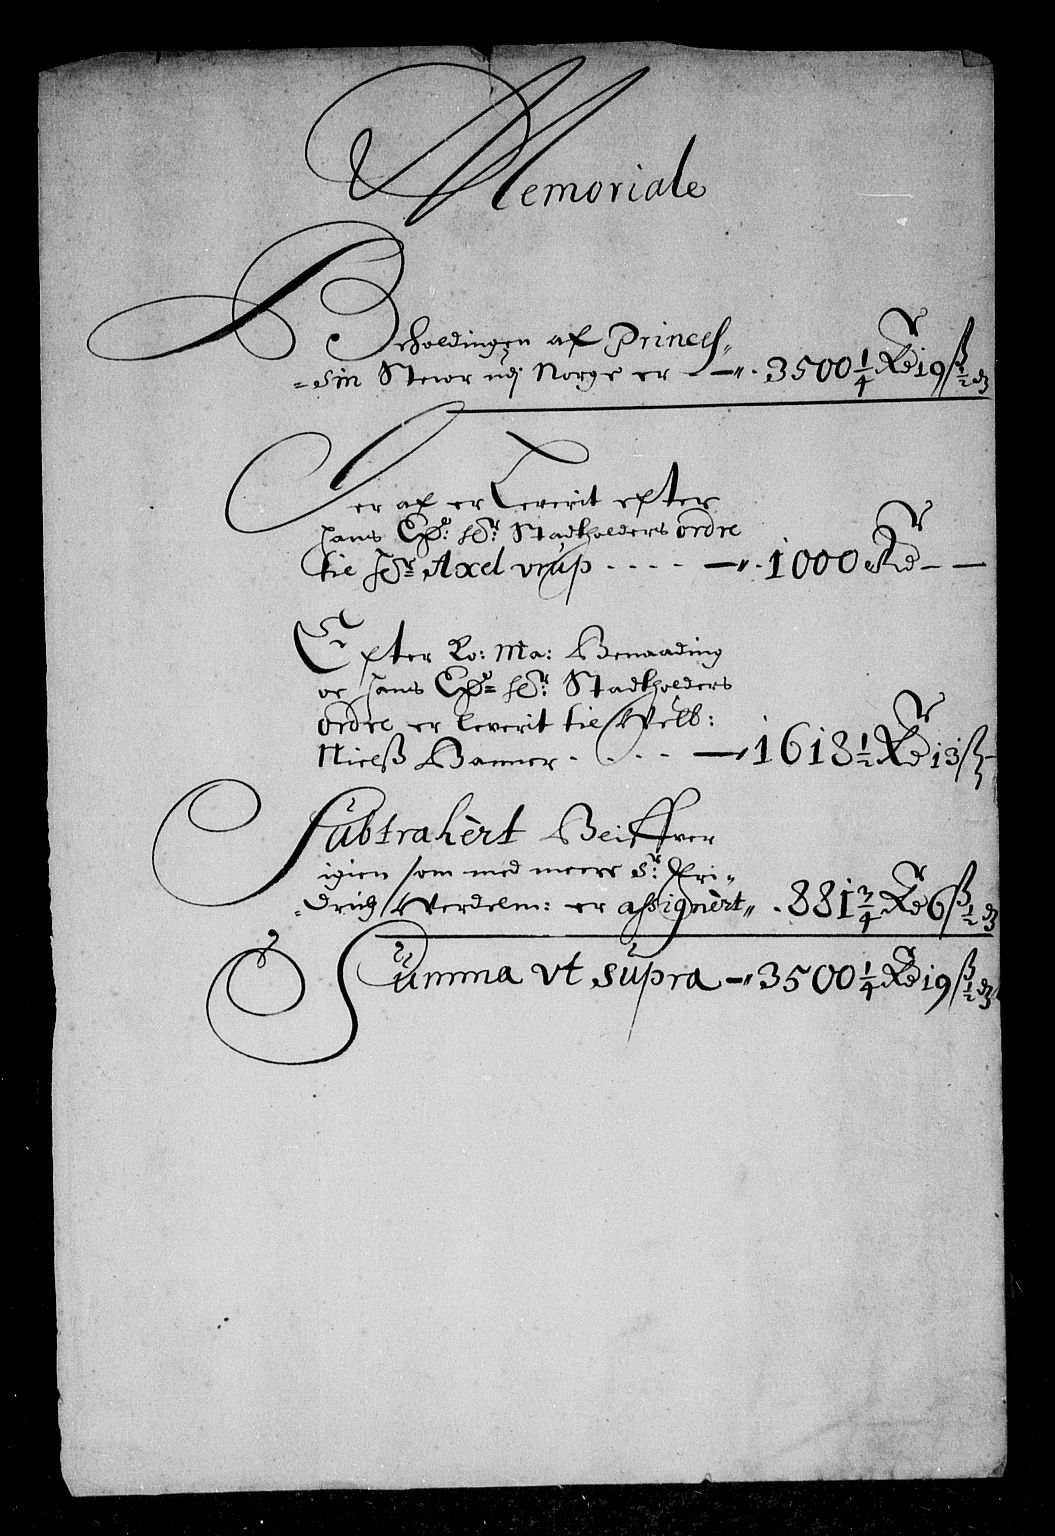 Memoriale
Beholdingen af Princes„
„sin Steur udj Norge er —„ 3500 1/4 Rdr 19 ß 1/2 d
Her af er Leverit efter
hans Exp: hr: Stadtholders ordre
til hr: Axel vrup - - - - —„ 1000 Rdr — —
Efter Ko: Ma: Benaading
oc hans Exp: hr: Stadtholders
ordre er leverit til Welb:
Nielß Banner - - - - — 1618 1/2 Rdr 13 ß —
Subtrahèrt Beiffver
igien som med meere Sr: Fri„
„drich Werdelm: er assignèrt„ . 881 3/4 Rdr 6 ß 1/2 d
Summa vt supra —„ 3500 1/4 Rdr 19 ß 1/2 d